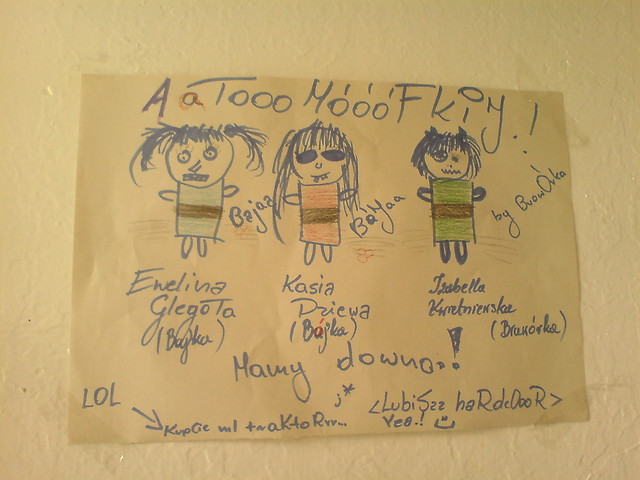 A a Tooo MóóóFkiM!
Bajaa
BaYaa
by BrowÓrka
Ewelina
Glegoła
(Bajka)
Kasia
Dziewa
(Bójka)
Izabella
Kwietniewska
(Browórka)
Mamy downa..!
;*
LOL
Kupcie mi traKtoRrr...
<LubiSzz haRdcOooR>
Yea.!